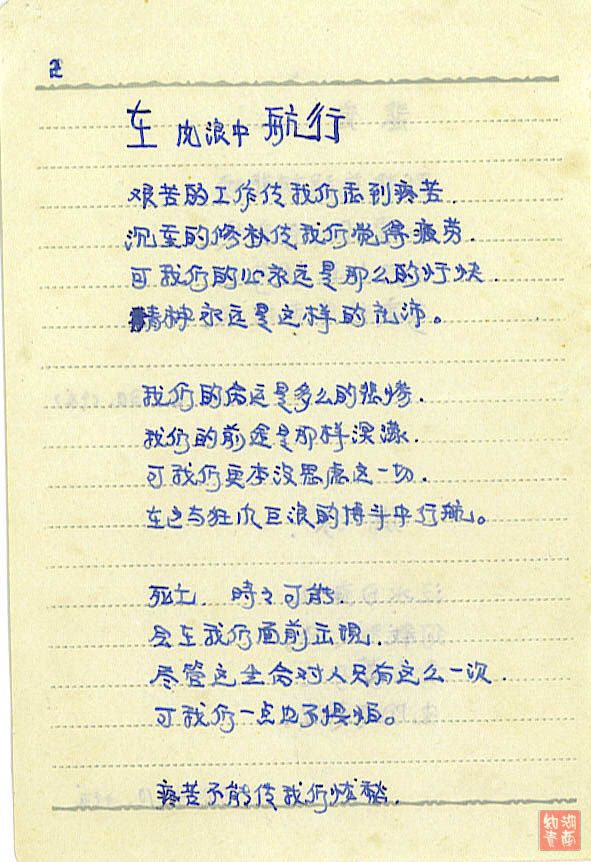 2
在风浪中航行
艰苦的工作使我们感到疼苦.
沉重的修补使我们觉得疲劳.
可我们的心永远是那么的行快.
精神永远是这样的充沛。
我们的命运是多么的悲惨.
我们的前途是那样溟濛.
可我们更本没思虑这一切.
在这与狂风巨浪的博斗中行航。
死亡. 時々可能.
会在我们面前出現.
尽管这生命对人只有这么一次.
可我们一点也不懊烦。
疼苦不能使我们忧愁.
湖南
知青